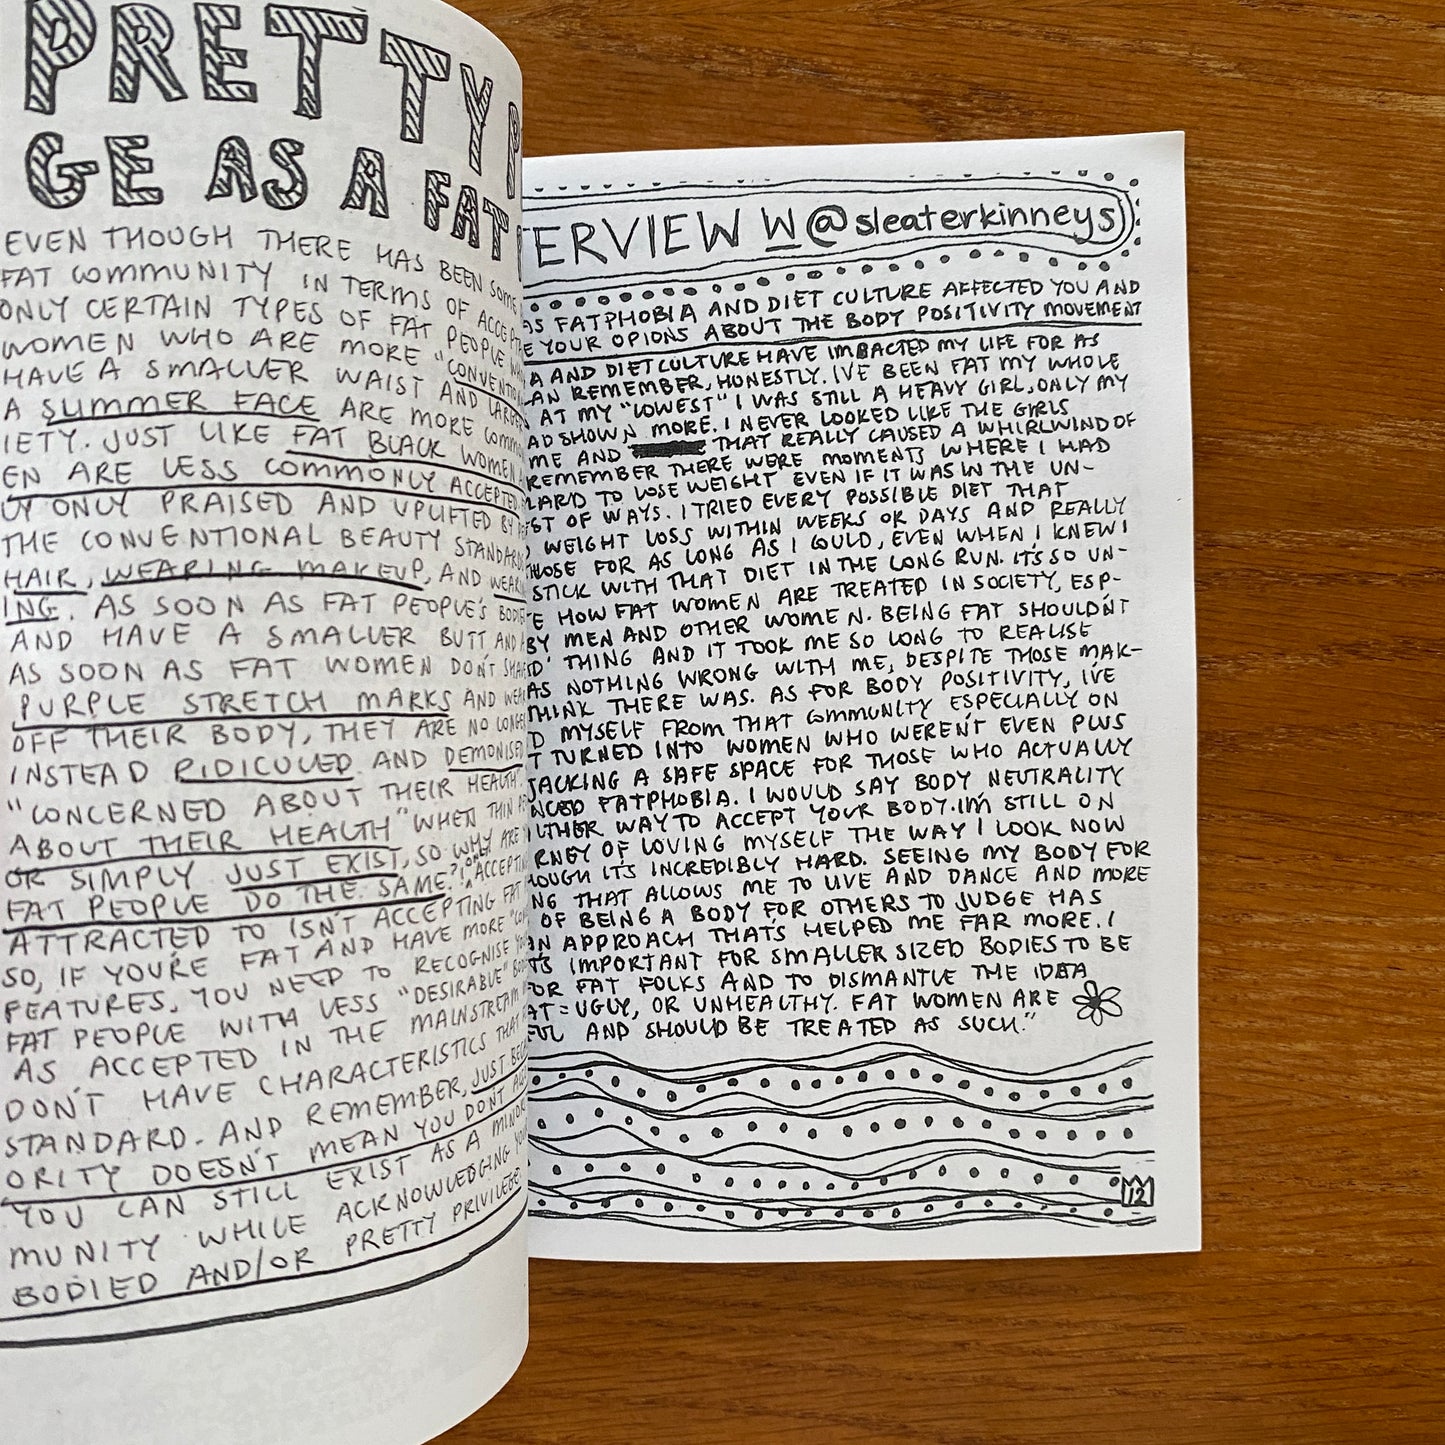 PRETTY P
GE AS A FAT
EVEN THOUGH THERE HAS BEEN SOME
FAT COMMUNITY IN TERMS OF ACCEPTA
ONLY CERTAIN TYPES OF FAT PEOPLE WHO
WOMEN WHO ARE MORE "CONVENTION
HAVE A SMALLER WAIST AND LARGER
A SLIMMER FACE ARE MORE COMMON
IETY. JUST LIKE FAT BLACK WOMEN A
EN ARE LESS COMMONLY ACCEPTED.
LY ONLY PRAISED AND UPLIFTED BY
THE CONVENTIONAL BEAUTY STANDARDS
HAIR, WEARING MAKEUP, AND WEAR
ING. AS SOON AS FAT PEOPLE'S BODIES
AND HAVE A SMALLER BUTT AND A
AS SOON AS FAT WOMEN DON'T SHAVE
PURPLE STRETCH MARKS AND WEAR
OFF THEIR BODY, THEY ARE NO LONGER
INSTEAD RIDICULED AND DEMONISED
"CONCERNED ABOUT THEIR HEALTH".
ABOUT THEIR HEALTH" WHEN THIN
OR SIMPLY JUST EXIST, SO WHY ARE
FAT PEOPLE DO THE SAME?! ONLY "ACCEPTING
ATTRACTED TO ISN'T ACCEPTING FAT
SO, IF YOU'RE FAT AND HAVE MORE "CON
FEATURES, YOU NEED TO RECOGNISE YOUR
FAT PEOPLE WITH LESS "DESIRABLE" BOD
AS ACCEPTED IN THE MAINSTREAM
DON'T HAVE CHARACTERISTICS THAT
STANDARD. AND REMEMBER, JUST BECA
ORITY DOESN'T MEAN YOU DON'T ALL
YOU CAN STILL EXIST AS A MINOR
MUNITY WHILE ACKNOWLEDGING YOUR
BODIED AND/OR PRETTY PRIVILEGE.
TERVIEW W @sleaterkinneys
AS FATPHOBIA AND DIET CULTURE AFFECTED YOU AND
E YOUR OPIONS ABOUT THE BODY POSITIVITY MOVEMENT
A AND DIET CULTURE HAVE IMPACTED MY LIFE FOR AS
CAN REMEMBER, HONESTLY. I'VE BEEN FAT MY WHOLE
AT MY "LOWEST" I WAS STILL A HEAVY GIRL, ONLY MY
AD SHOWN MORE. I NEVER LOOKED LIKE THE GIRLS
ME AND THAT REALLY CAUSED A WHIRLWIND OF
REMEMBER THERE WERE MOMENTS WHERE I HAD
HARD TO LOSE WEIGHT EVEN IF IT WAS IN THE UN-
EST OF WAYS. I TRIED EVERY POSSIBLE DIET THAT
D WEIGHT LOSS WITHIN WEEKS OR DAYS AND REALLY
THOSE FOR AS LONG AS I COULD, EVEN WHEN I KNEW I
STICK WITH THAT DIET IN THE LONG RUN. IT'S SO UN-
E HOW FAT WOMEN ARE TREATED IN SOCIETY, ESP-
BY MEN AND OTHER WOMEN. BEING FAT SHOULDN'T
D' THING AND IT TOOK ME SO LONG TO REALISE
AS NOTHING WRONG WITH ME, DESPITE THOSE MAK-
THINK THERE WAS. AS FOR BODY POSITIVITY, I'VE
D MYSELF FROM THAT COMMUNITY ESPECIALLY ON
T TURNED INTO WOMEN WHO WEREN'T EVEN PLUS
JACKING A SAFE SPACE FOR THOSE WHO ACTUALLY
NCED FATPHOBIA. I WOULD SAY BODY NEUTRALITY
LTHIER WAY TO ACCEPT YOUR BODY. I'M STILL ON
RNEY OF LOVING MYSELF THE WAY I LOOK NOW
HOUGH IT'S INCREDIBLY HARD. SEEING MY BODY FOR
NG THAT ALLOWS ME TO LIVE AND DANCE AND MORE
OF BEING A BODY FOR OTHERS TO JUDGE HAS
AN APPROACH THAT'S HELPED ME FAR MORE. I
T'S IMPORTANT FOR SMALLER SIZED BODIES TO BE
FOR FAT FOLKS AND TO DISMANTLE THE IDEA
AT = UGLY, OR UNHEALTHY. FAT WOMEN ARE
FUL AND SHOULD BE TREATED AS SUCH."
12